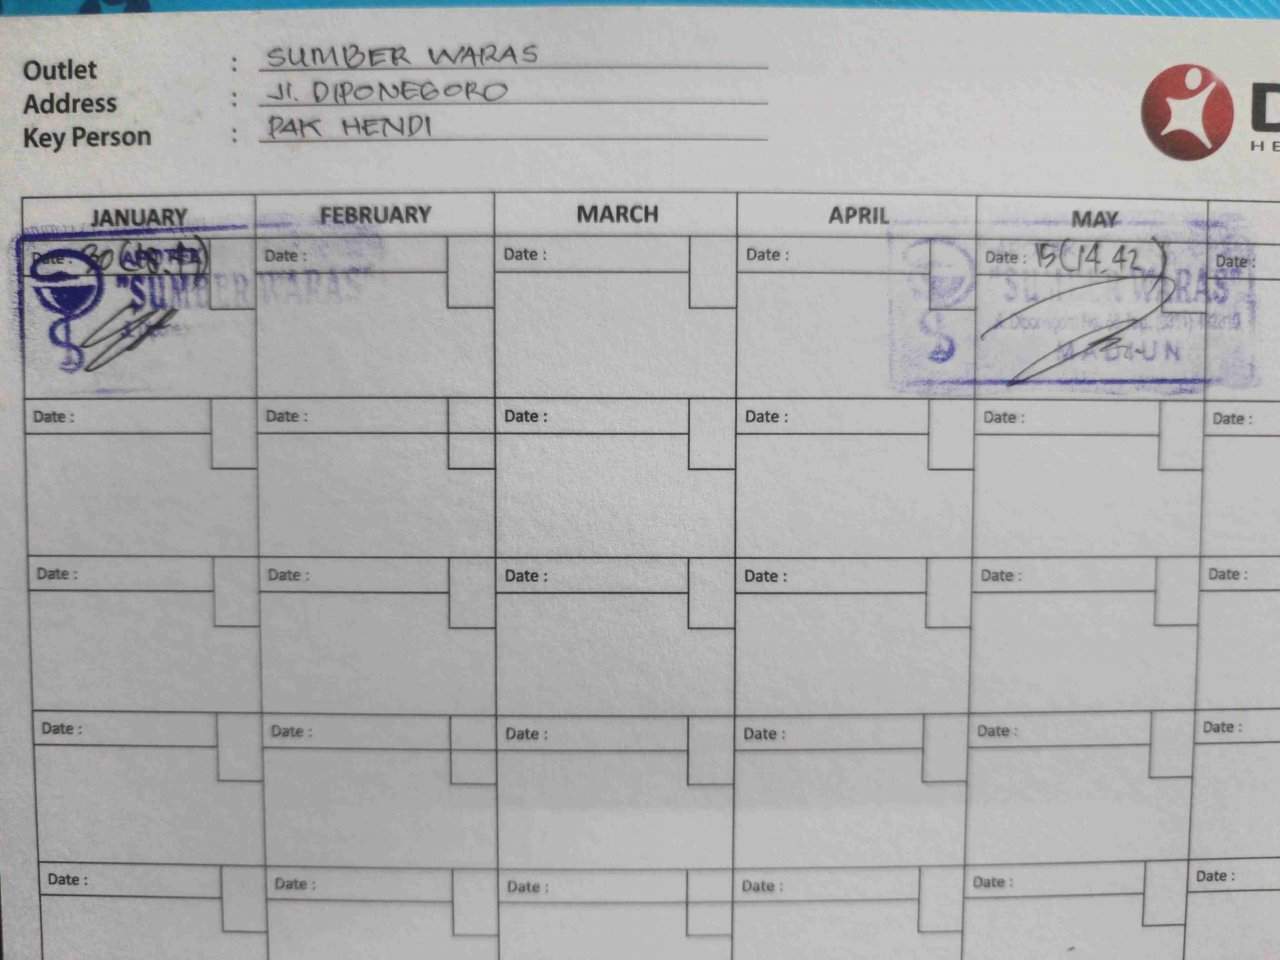 Outlet : SUMBER WARAS
Address : Jl. DIPONEGORO
Key Person : PAK HENDI
D
HE
JANUARY FEBRUARY MARCH APRIL MAY
Date : 30 Date : Date : Date : Date : 15 (14.42) Date :
APOTEK
"SUMBER WARAS" "SUMBER WARAS"
MADIUN
Date : Date : Date : Date : Date : Date :
Date : Date : Date : Date : Date : Date :
Date : Date : Date : Date : Date : Date :
Date : Date : Date : Date : Date : Date :